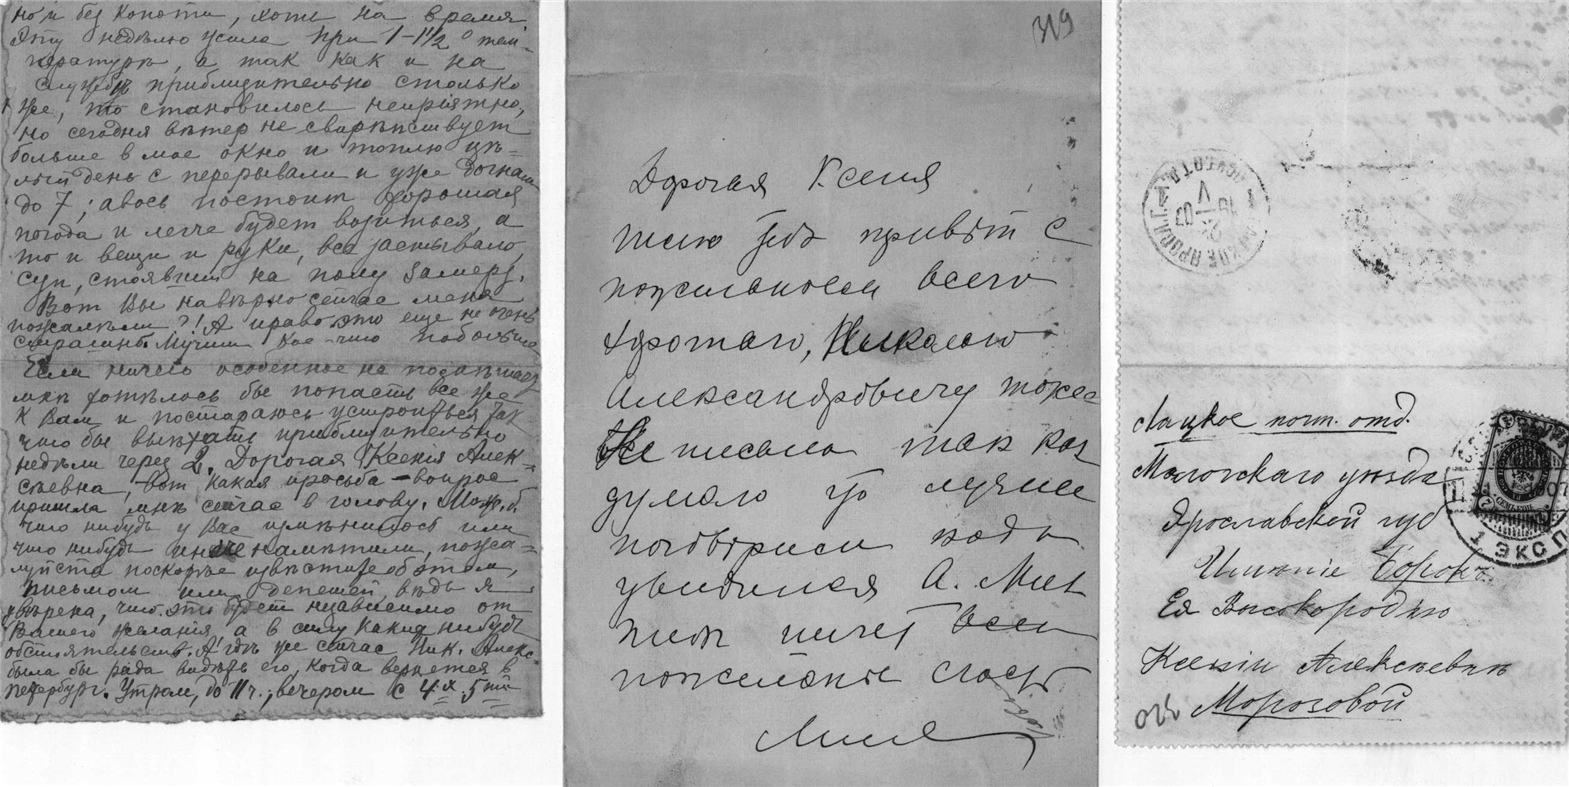 но и без копоти, хоть на время.
Эту недѣлю жила при 1-1½° тем-
пературѣ, а так как и на
службѣ приблизительно столько
же, то становилось непріятно,
но сегодня вѣтер не свирѣпствует
больше в мое окно и топлю цѣ-
лый день с перерывами и уже догнала
до 7; авось постоит хорошая
погода и легче будет возиться, а
то и вещи и руки, все застывало,
суп, стоявший на полу замерз.
Вот Вы навѣрно сейчас меня
пожалѣли?! А право это еще не очень
страшно. Мучит кое-что побольше
Если ничего особенное не
мнѣ хотѣлось бы попасть все же
к Вам и постараюсь устроиться так
что бы выѣхать приблизительно
недѣли через 2. Дорогая Ксенія Алек-
сѣевна, вот какая просьба-вопрос
пришла мнѣ сейчас в голову. Мож. б.
что нибудь у Вас измѣнилось или
что нибудь иначе намѣтили, пожа-
луйста поскорѣе извѣстите об этом,
письмом или депешей, вѣдь я
увѣрена, что это будет независимо от
Вашего желанія, а в силу каких нибудь
обстоятельств. А гдѣ же сейчас Ник. Алекс.
была бы рада видѣть его, когда вернется в
Петербург. Утром, до 11 ч., вечером с 4х 5ти
319
Дорогая Ксеня
шлю тебѣ привѣт с
пожеланіем всего
хорошаго, Николаю
Александровичу тоже
Не писала так как
думаю что лучше
поговорим когда
увидимся А. Мих
тоже шлет всем
пожеланіе
Лацкое почт. отд.
Мологскаго уѣзда
Ярославской губ
Имѣніе Борокъ.
Ея Высокородію
Ксеніи Алексѣевнѣ
Морозовой
320
1 ЭКСП